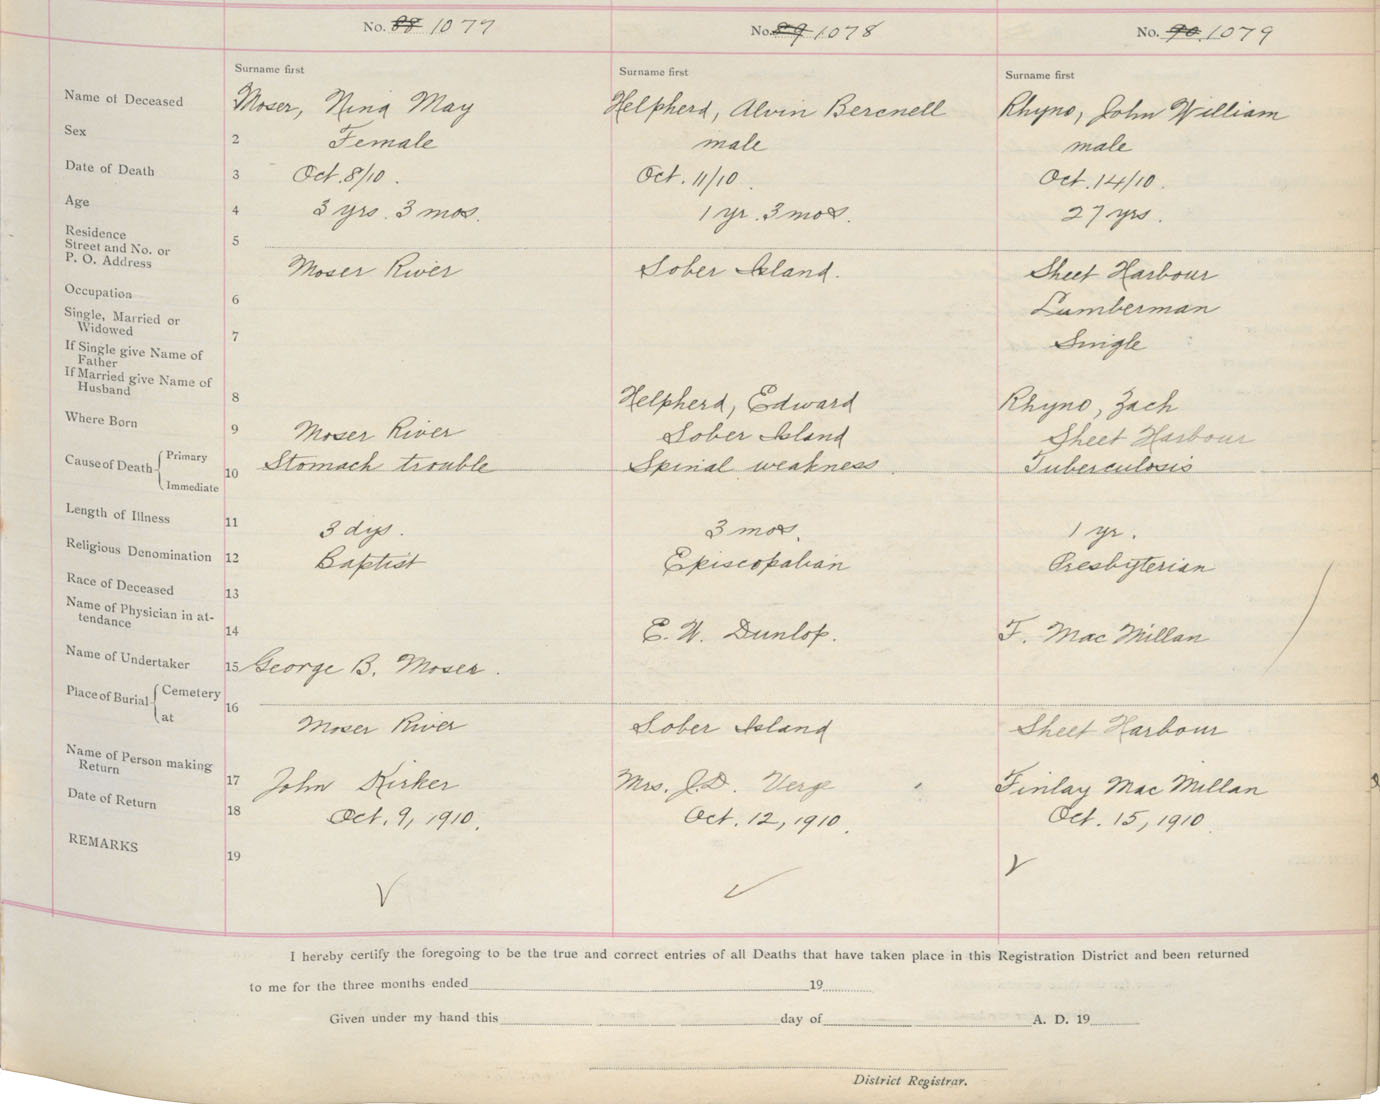 No. 88 1077 No. 89 1078 No. 90 1079
Surname first Surname first Surname first
Name of Deceased Moser, Nina May Helpherd, Alvin Bercnell Rhyno, John William
Sex 2 Female male male
Date of Death 3 Oct. 8/10. Oct. 11/10. Oct. 14/10.
Age 4 3 yrs. 3 mos. 1 yr. 3 mos. 27 yrs.
Residence
Street and No. or 5
P. O. Address Moser River Sober Island. Sheet Harbour
Occupation 6 Lumberman
Single, Married or
Widowed 7 Single
If Single give Name of
Father
If Married give Name of
Husband 8 Helpherd, Edward Rhyno, Zach
Where Born 9 Moser River Sober Island Sheet Harbour
Cause of Death Primary 10 Stomach trouble Spinal weakness Tuberculosis
Immediate
Length of Illness 11 3 dys. 3 mos. 1 yr.
Religious Denomination 12 Baptist Episcopalian Presbyterian
Race of Deceased 13
Name of Physician in at-
tendance 14 E. W. Dunlop. F. MacMillan
Name of Undertaker 15 George B. Moser.
Place of Burial Cemetery 16
at Moser River Sober Island Sheet Harbour
Name of Person making
Return 17 John Kirker Mrs. J.D. Verge Finlay MacMillan
Date of Return 18 Oct. 9, 1910. Oct. 12, 1910. Oct. 15, 1910.
REMARKS 19
I hereby certify the foregoing to be the true and correct entries of all Deaths that have taken place in this Registration District and been returned
to me for the three months ended 19
Given under my hand this day of A. D. 19
District Registrar.